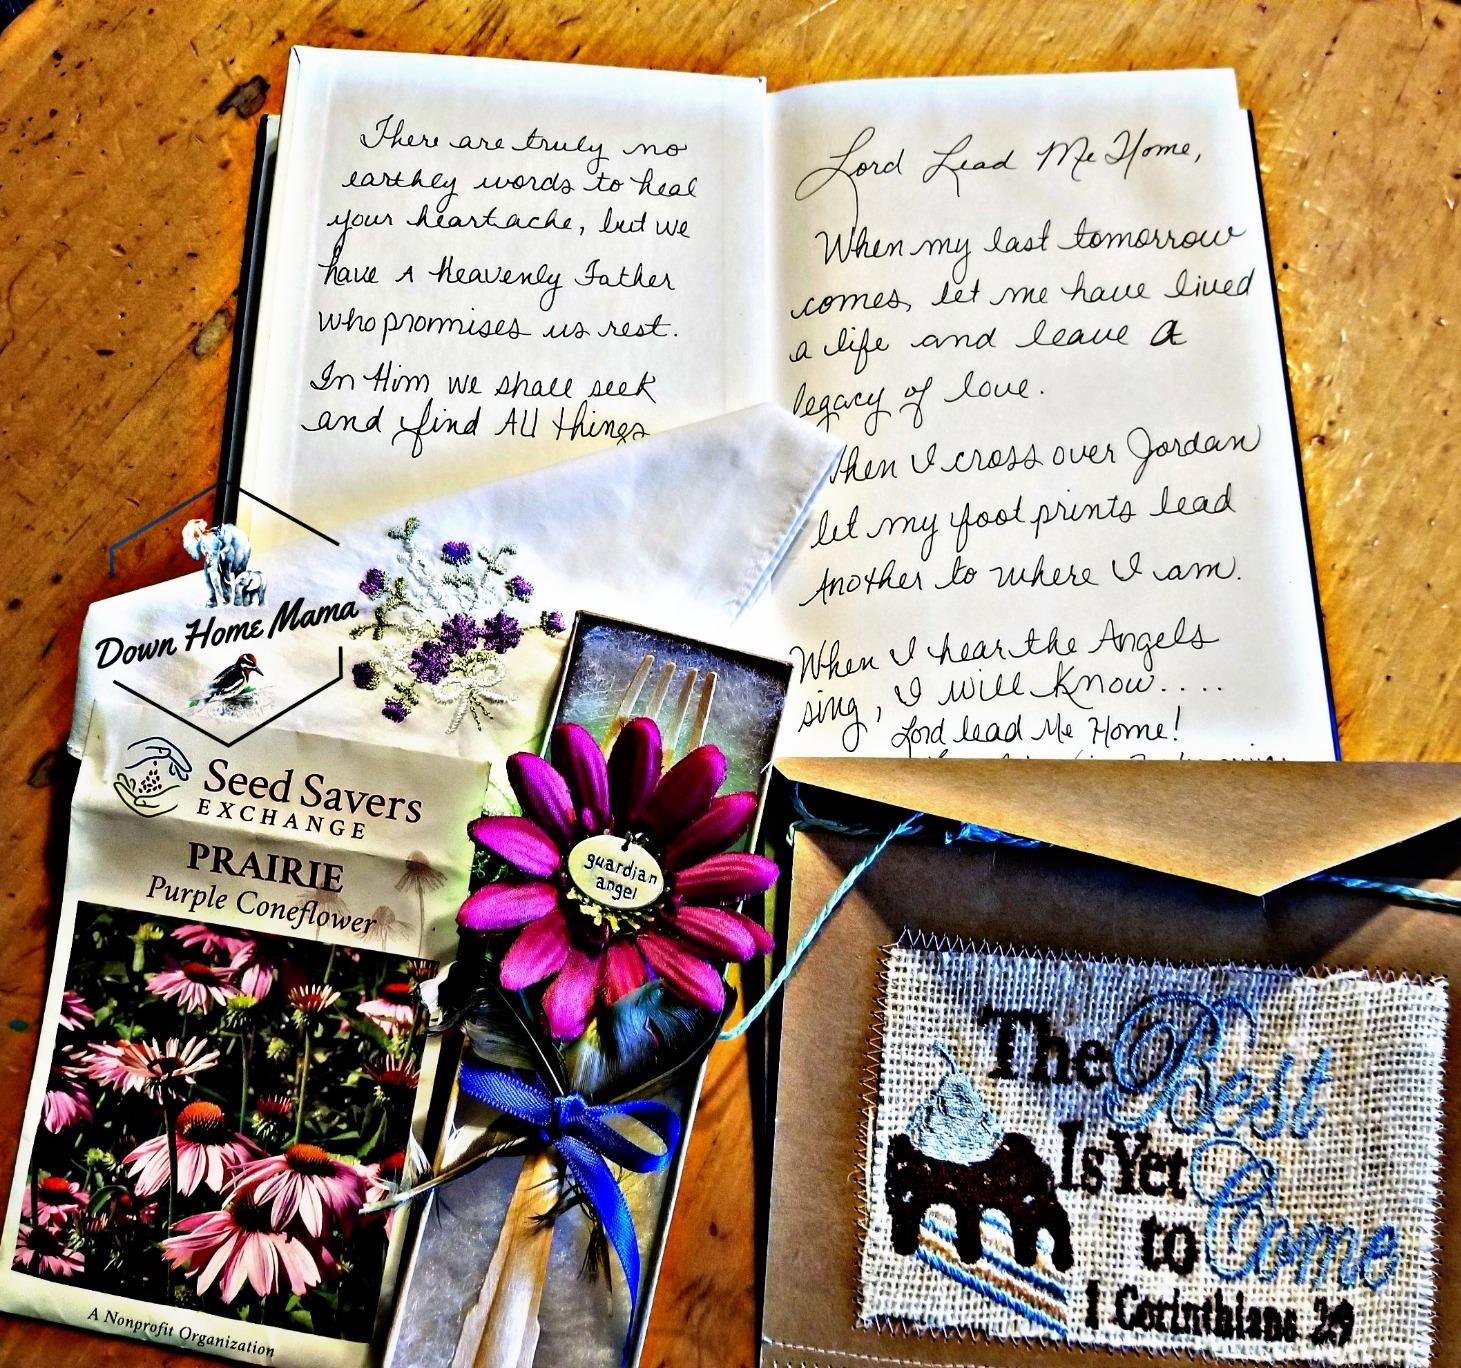 There are truly no
earthly words to heal
your heartache, but we
have a Heavenly Father
who promises us rest.
In Him we shall seek
and find All things
Lord Lead Me Home,
When my last tomorrow
comes, let me have lived
a life and leave a
legacy of love.
When I cross over Jordan
let my foot prints lead
Another to where I am.
When I hear the Angels
sing, I will Know....
Lord lead Me Home!
Down Home Mama
Seed Savers
EXCHANGE
PRAIRIE
Purple Coneflower
A Nonprofit Organization
guardian
angel
The Best
Is Yet
to Come
1 Corinthians 2:9